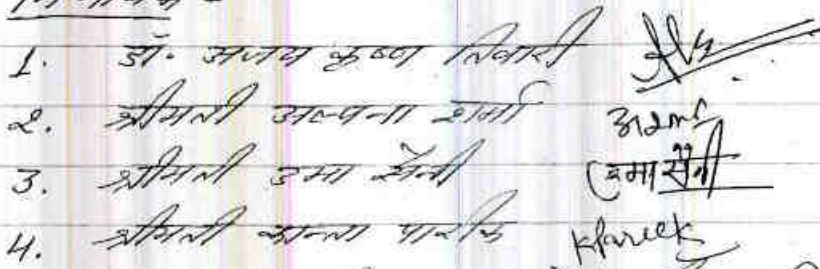 1. डॉ. अजय कृष्ण तिवारी
2. श्रीमती अल्पना शर्मा
3. श्रीमती उमा सैनी उमा सैनी
4. श्रीमती कान्ता पारीक KPareek